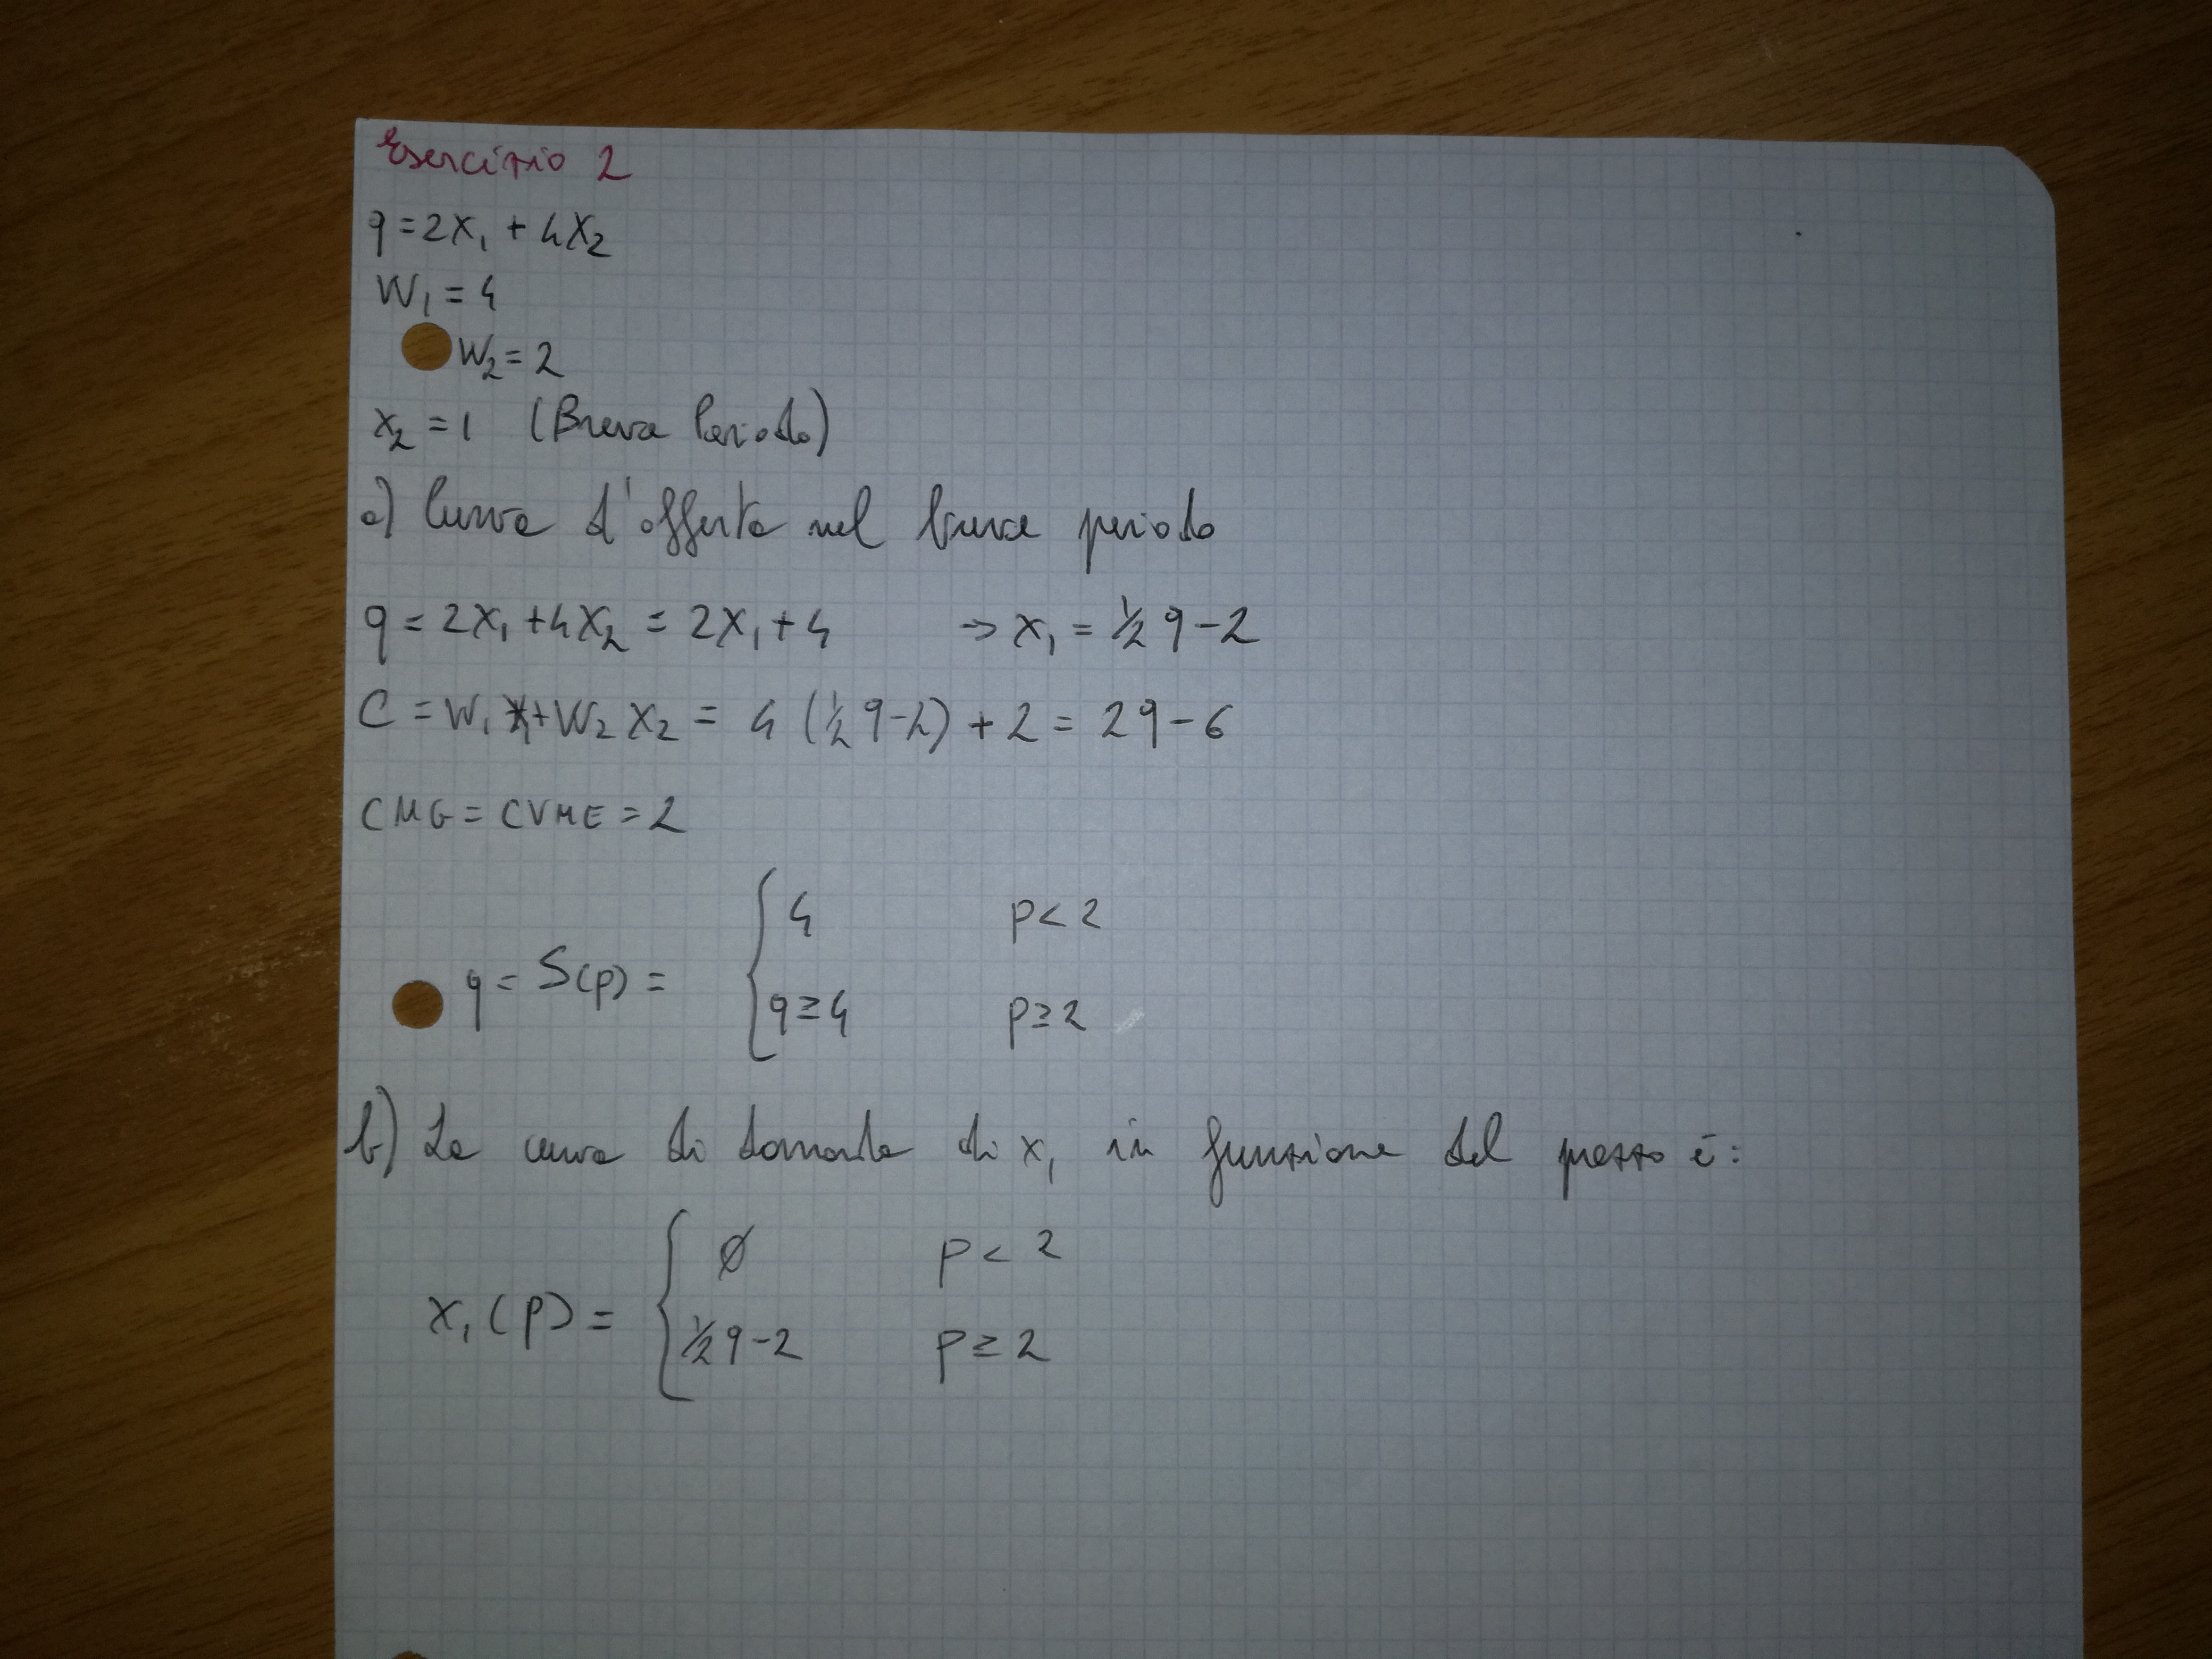 Esercizio 2
q = 2x₁ + 4x₂
W₁ = 4
W₂ = 2
x₂ = 1 (Breve Periodo)
a) Curva d'offerta nel breve periodo
q = 2x₁ + 4x₂ = 2x₁ + 4 → x₁ = ½ q - 2
C = W₁ x₁ + W₂ x₂ = 4 (½ q - 2) + 2 = 2q - 6
CMG = CVME = 2
q = S(p) = { 4 p < 2
q ≥ 4 p ≥ 2
b) La curva di domanda di x₁ in funzione del prezzo è:
x₁(p) = { Ø p < 2
½ q - 2 p ≥ 2